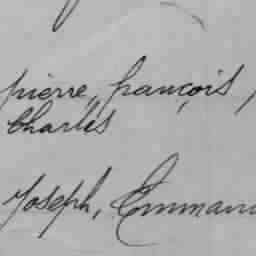 pierre, françois,
Charles
Joseph, Emmanu